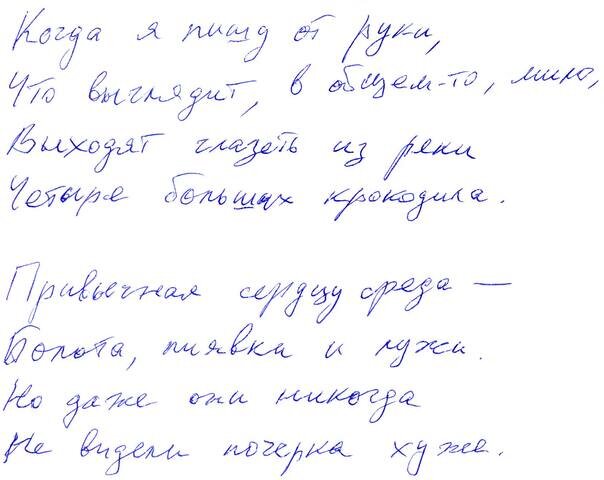 Когда я пишу от руки,
Что выглядит, в общем-то, мило,
Выходят глазеть из реки
Четыре больших крокодила.
Привычная сердцу среда —
Болота, пиявки и лужи.
Но даже они никогда
Не видели почерка хуже.